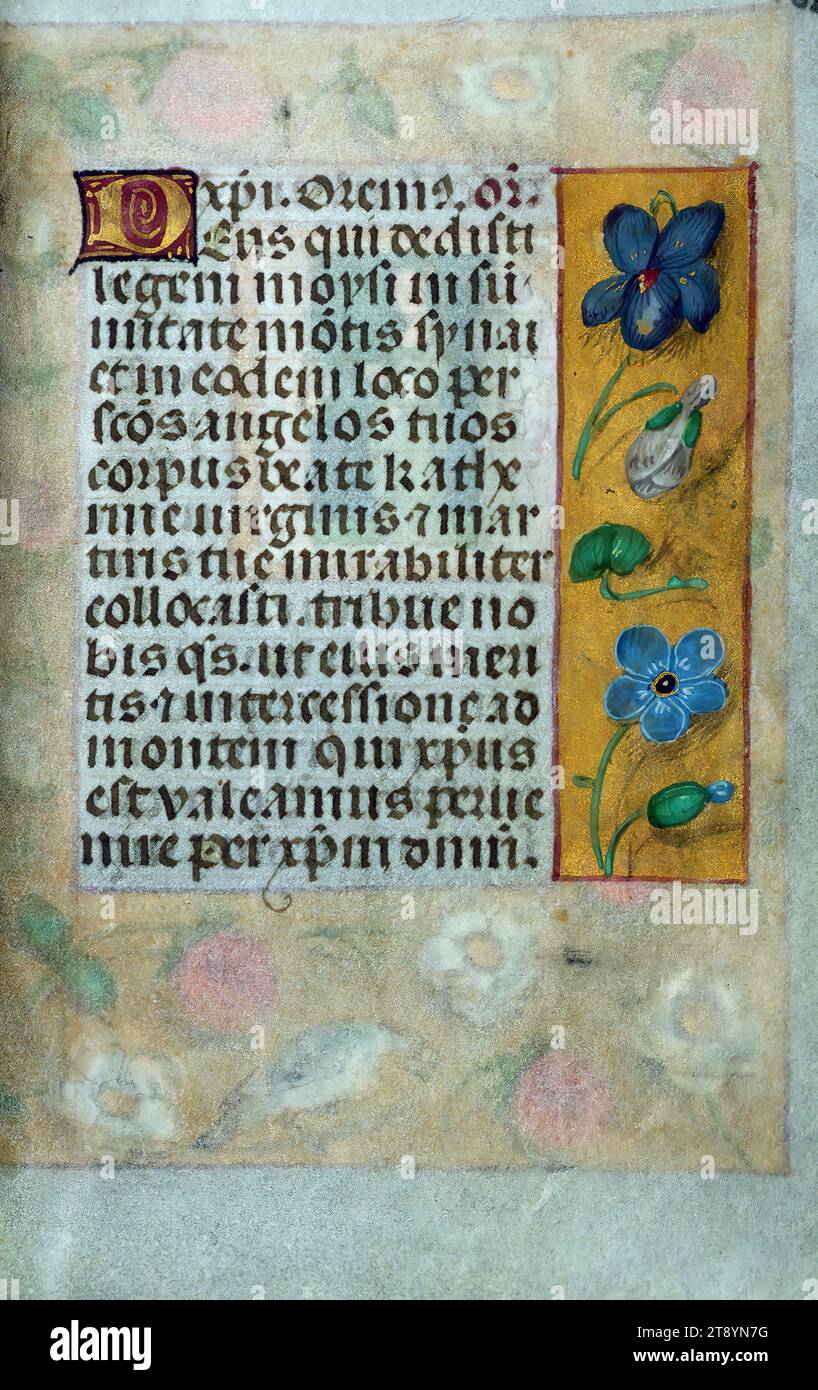 xp̄i. Orem9. or̄.
DEus qui dedisti
legem moysi in sū
mitate mōtis synai
et in eodem loco per
scōs angelos tuos
corpus beate kathe
rine uirginis ⁊ mar
tiris tue mirabiliter
collocasti. tribue no
bis qs̄. ut eius meri
tis ⁊ intercessione ad
montem qui xp̄us
est valeamus perue
nire per xp̄m dn̄m̄.
alamy
alamy
alamy
Image ID: 2T8YN7G
www.alamy.com